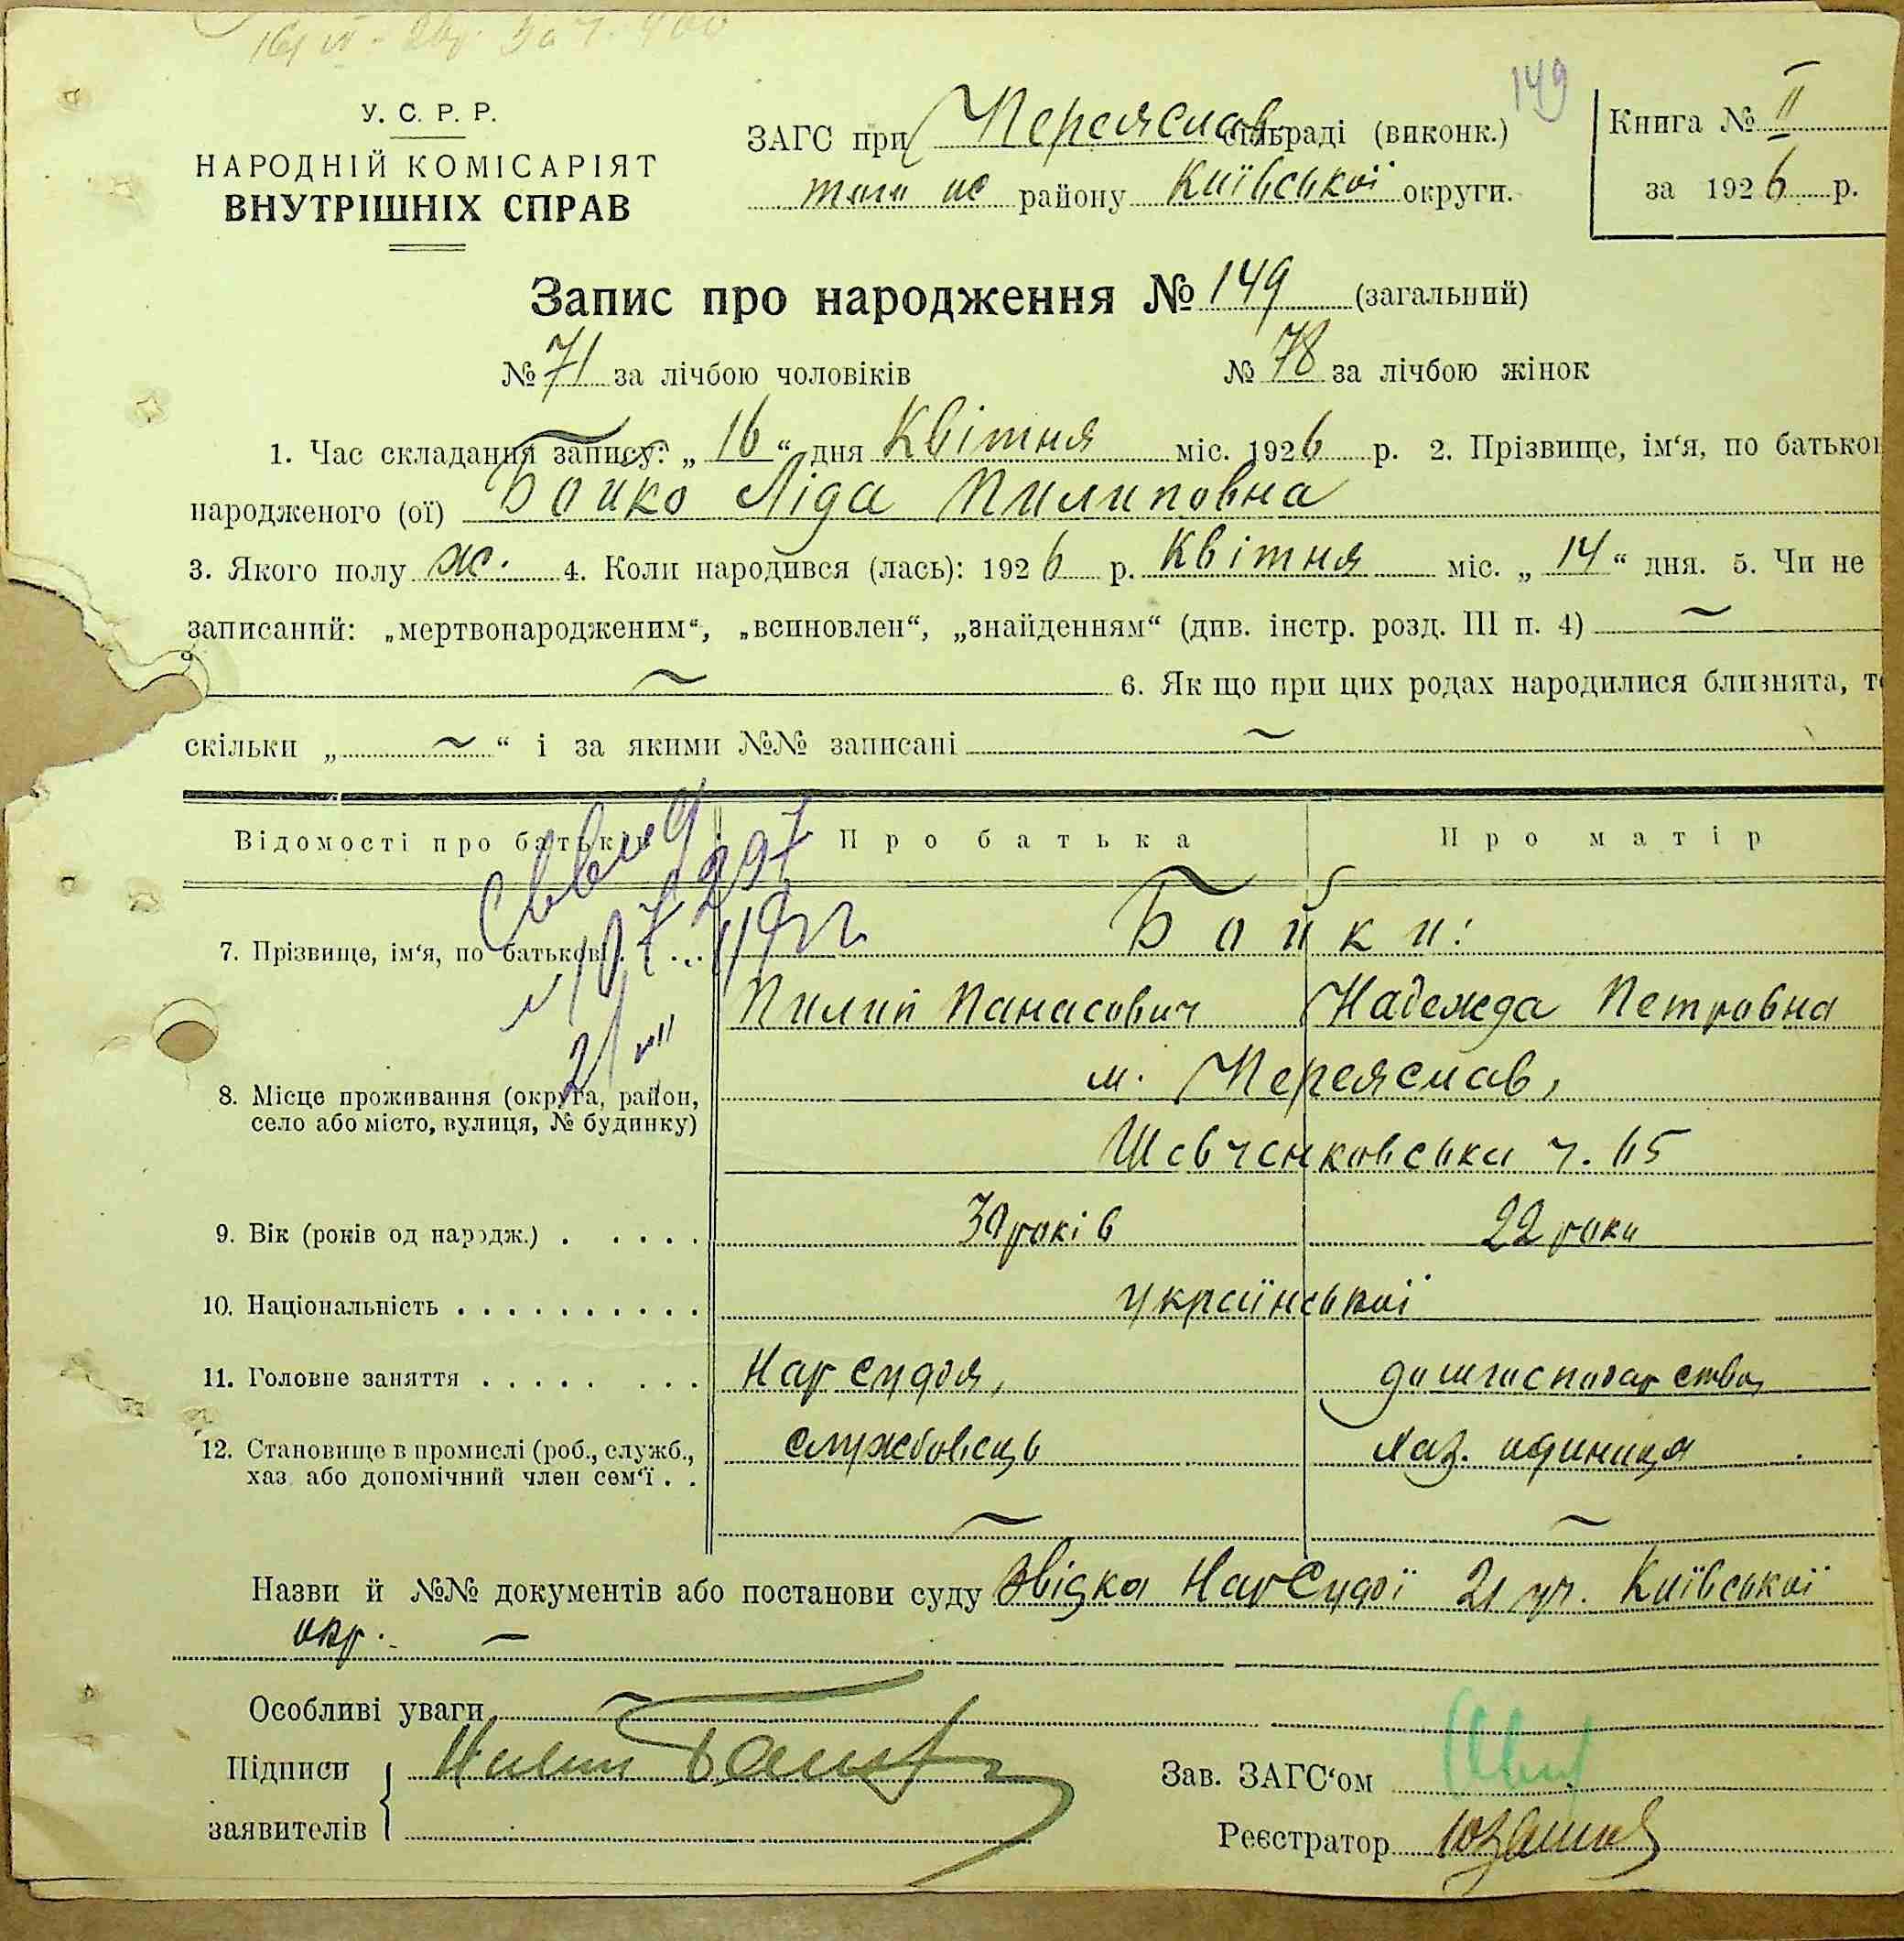 149
У. С. Р. Р.
НАРОДНІЙ КОМІСАРІЯТ
ВНУТРІШНІХ СПРАВ
ЗАГС при Переяслав сільраді (виконк.)
того ж району Київської округи.
Книга № II
за 1926 р.
Запис про народження № 149 (загальний)
№ 71 за лічбою чоловіків № 78 за лічбою жінок
1. Час складання запису: „ 16 “ дня Квітня міс. 1926 р. 2. Прізвище, ім‘я, по батьков
народженого (ої) Бойко Ліда Пилиповна
3. Якого полу ж. 4. Коли народився (лась): 1926 р. Квітня міс. „ 14 “ дня. 5. Чи не
записаний: „мертвонародженим“, „всиновлен“, „знайденням“ (див. інстр. розд. III п. 4) ~
~ 6. Як що при цих родах народилися близнята, то
скільки „ ~ “ і за якими №№ записані ~
Відомості про батьків Про батька Про матір
7. Прізвище, ім‘я, по батькові Бойки:
Пилип Панасович Надежда Петровна
8. Місце проживання (округа, район, м. Переяслав,
село або місто, вулиця, № будинку) Шевченковська ч. 65
9. Вік (років од народж.) 30 років 22 роки
10. Національність української
11. Головне заняття НарСуддя, домгосподарство
12. Становище в промислі (роб., служб., службовець Хаз. одиниця
хаз. або допомічний член сем‘ї ~ ~
Назви й №№ документів або постанови суду Звідка НарСудді 21 уч. Київської
окр. ~
Особливі уваги ~
Підписи Пилип Бойко Зав. ЗАГС‘ом
заявителів Реєстратор